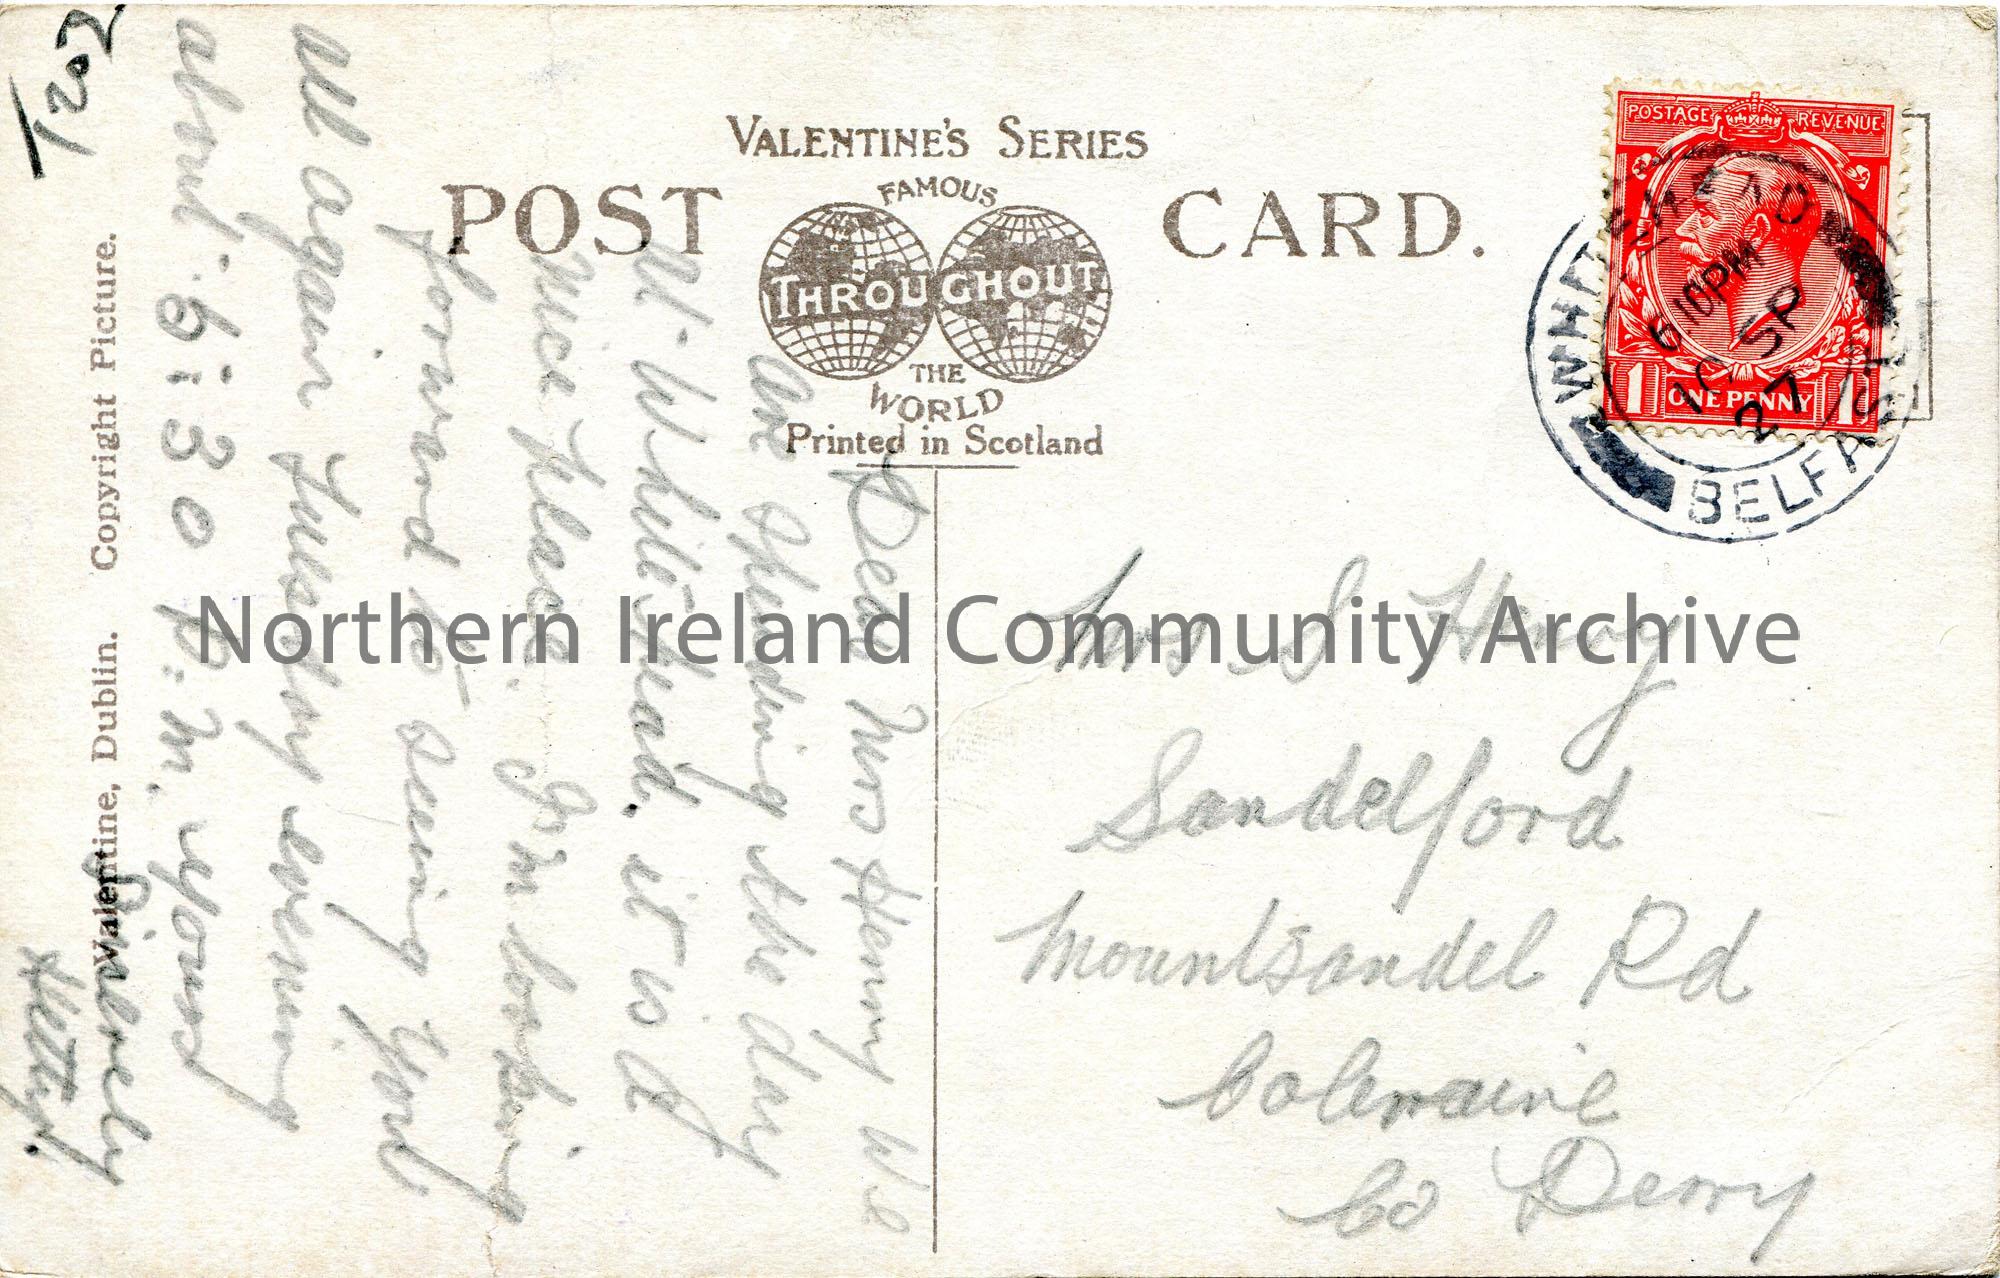 T202
VALENTINE'S SERIES
POST CARD.
FAMOUS
THROUGHOUT
THE
WORLD
Printed in Scotland
Valentine, Dublin. Copyright Picture.
POSTAGE REVENUE
1 ONE PENNY 1
WHITEHEAD
6 10PM
10 SP
27
BELFAST
Dear Mrs Henry We
are spending the day
at Whitehead, it is a
nice place. I'm looking
forward to seeing you
all again Tuesday evening
about 6:30 P.M. yours
Sincerely
Hetty.
Mrs S Henry
Sandelford
Mountsandel Rd
Coleraine
Co Derry
Northern Ireland Community Archive